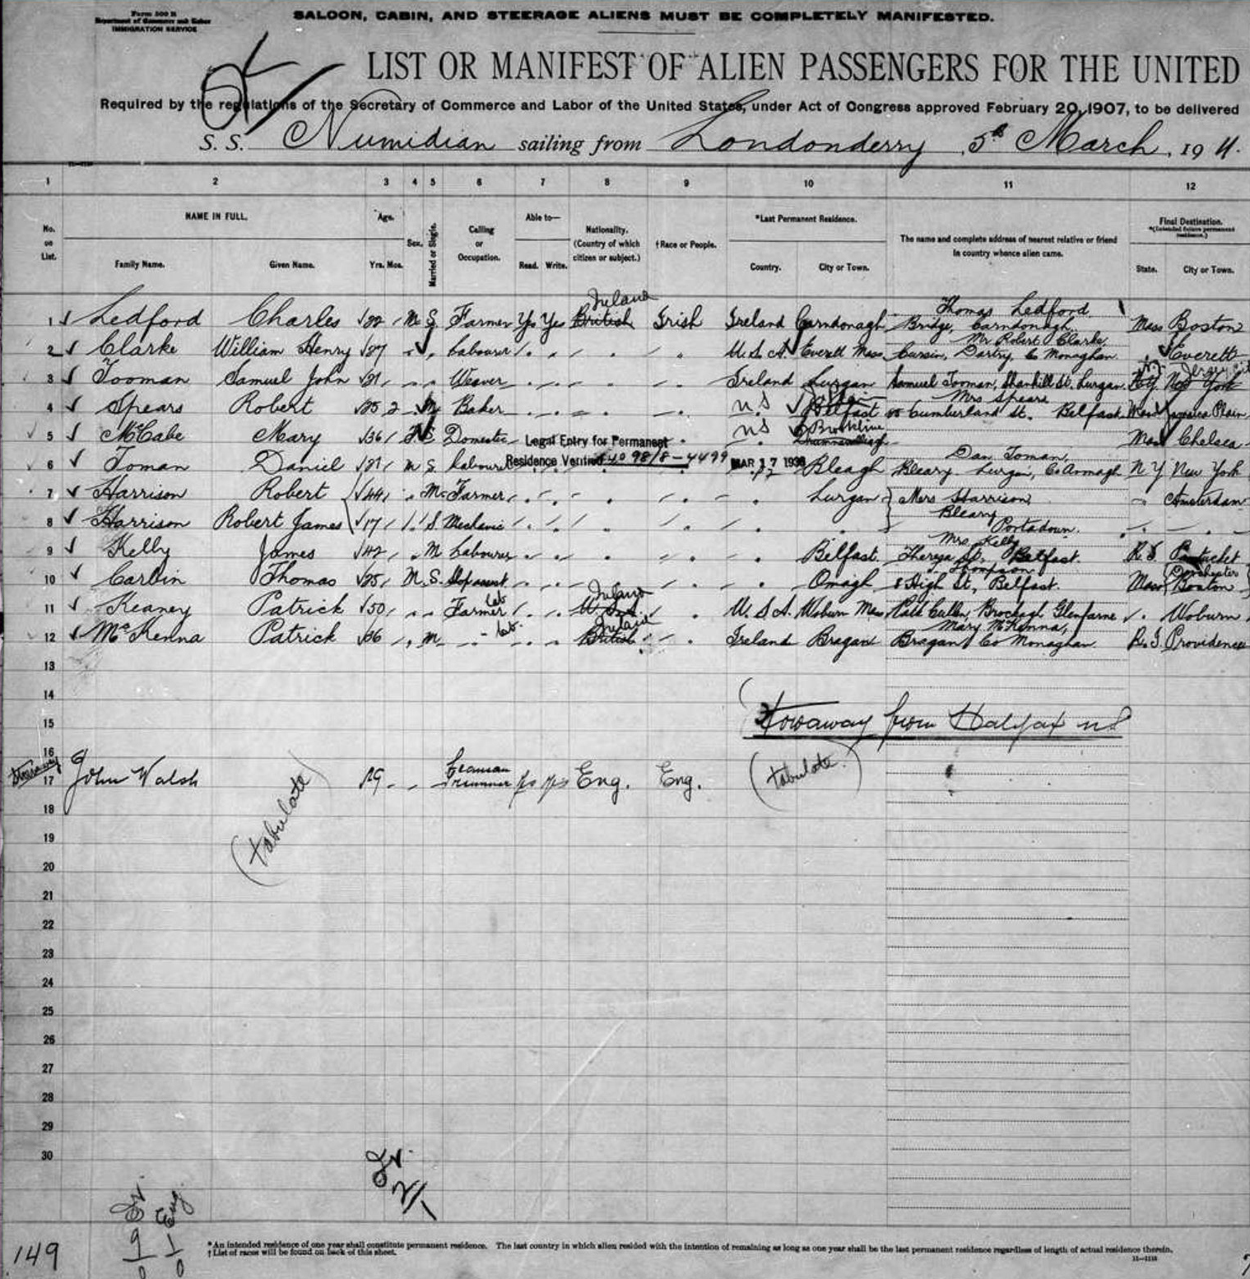 Form 500 B
Department of Commerce and Labor
IMMIGRATION SERVICE
SALOON, CABIN, AND STEERAGE ALIENS MUST BE COMPLETELY MANIFESTED.
LIST OR MANIFEST OF ALIEN PASSENGERS FOR THE UNITED
Required by the regulations of the Secretary of Commerce and Labor of the United States, under Act of Congress approved February 20, 1907, to be delivered
S. S. Numidian sailing from Londonderry, 5th March, 1911.
1 2 3 4 5 6 7 8 9 10 11 12
No. on List. NAME IN FULL. Family Name. Given Name. Age. Yrs. Mos. Sex. Married or Single. Calling or Occupation. Able to— Read. Write. Nationality. (Country of which citizen or subject.) †Race or People. *Last Permanent Residence. Country. City or Town. The name and complete address of nearest relative or friend in country whence alien came. Final Destination. *(Intended future permanent residence.) State. City or Town.
Ireland Thomas Ledford,
1 Ledford Charles M S Farmer Yes Yes British Irish Ireland Carndonagh Bridge, Carndonagh. Mass Boston
Mr Robert Clarke,
2 Clarke William Henry Labourer U.S.A. Everett Mass. Dartry, Co Monaghan. Everett
3 Tooman Samuel John Weaver Ireland Lurgan Samuel Tooman, Shankill St. Lurgan. New York
Mrs Spears
4 Spears Robert Baker Belfast Cumberland St. Belfast. Mass Jamaica Plain
Brookline
5 McCabe Mary S Domestic Mass Chelsea
Legal Entry for Permanent
Residence Verified
MAR 17
Dan Toman,
6 Toman Daniel M S Labourer Bleagh Bleary Lurgan, Co Armagh N Y New York
7 Harrison Robert 44 M Farmer Lurgan Mrs Harrison Amsterdam
Bleary
8 Harrison Robert James 17 S Mechanic Portadown.
Mrs Kelly
9 Kelly James 42 M Labourer Belfast. Belfast. R I Pawtucket
Thompson Dorchester
10 Thomas M. S. Omagh 8 High St, Belfast. Mass Boston
Ireland
11 Keaney Patrick 50 Farmer Lab U.S.A. U.S.A. Woburn Mass Cullen, Glenfarne Woburn
Ireland Mary McKenna,
12 McKenna Patrick 36 M Lab. British Ireland Bragan Bragan Co Monaghan. R.I. Providence
13
14
15 Stowaway from Halifax NS
16
Stowaway
17 John Walsh (tabulate) 19 Seaman Trimmer yes yes Eng. Eng. (tabulate)
18
19
20
21
22
23
24
25
26
27
28
29
30
Ir.
2/1
Ir. Eng.
9 1
0 0
149
*An intended residence of one year shall constitute permanent residence. The last country in which alien resided with the intention of remaining as long as one year shall be the last permanent residence regardless of length of actual residence therein.
†List of races will be found on back of this sheet.